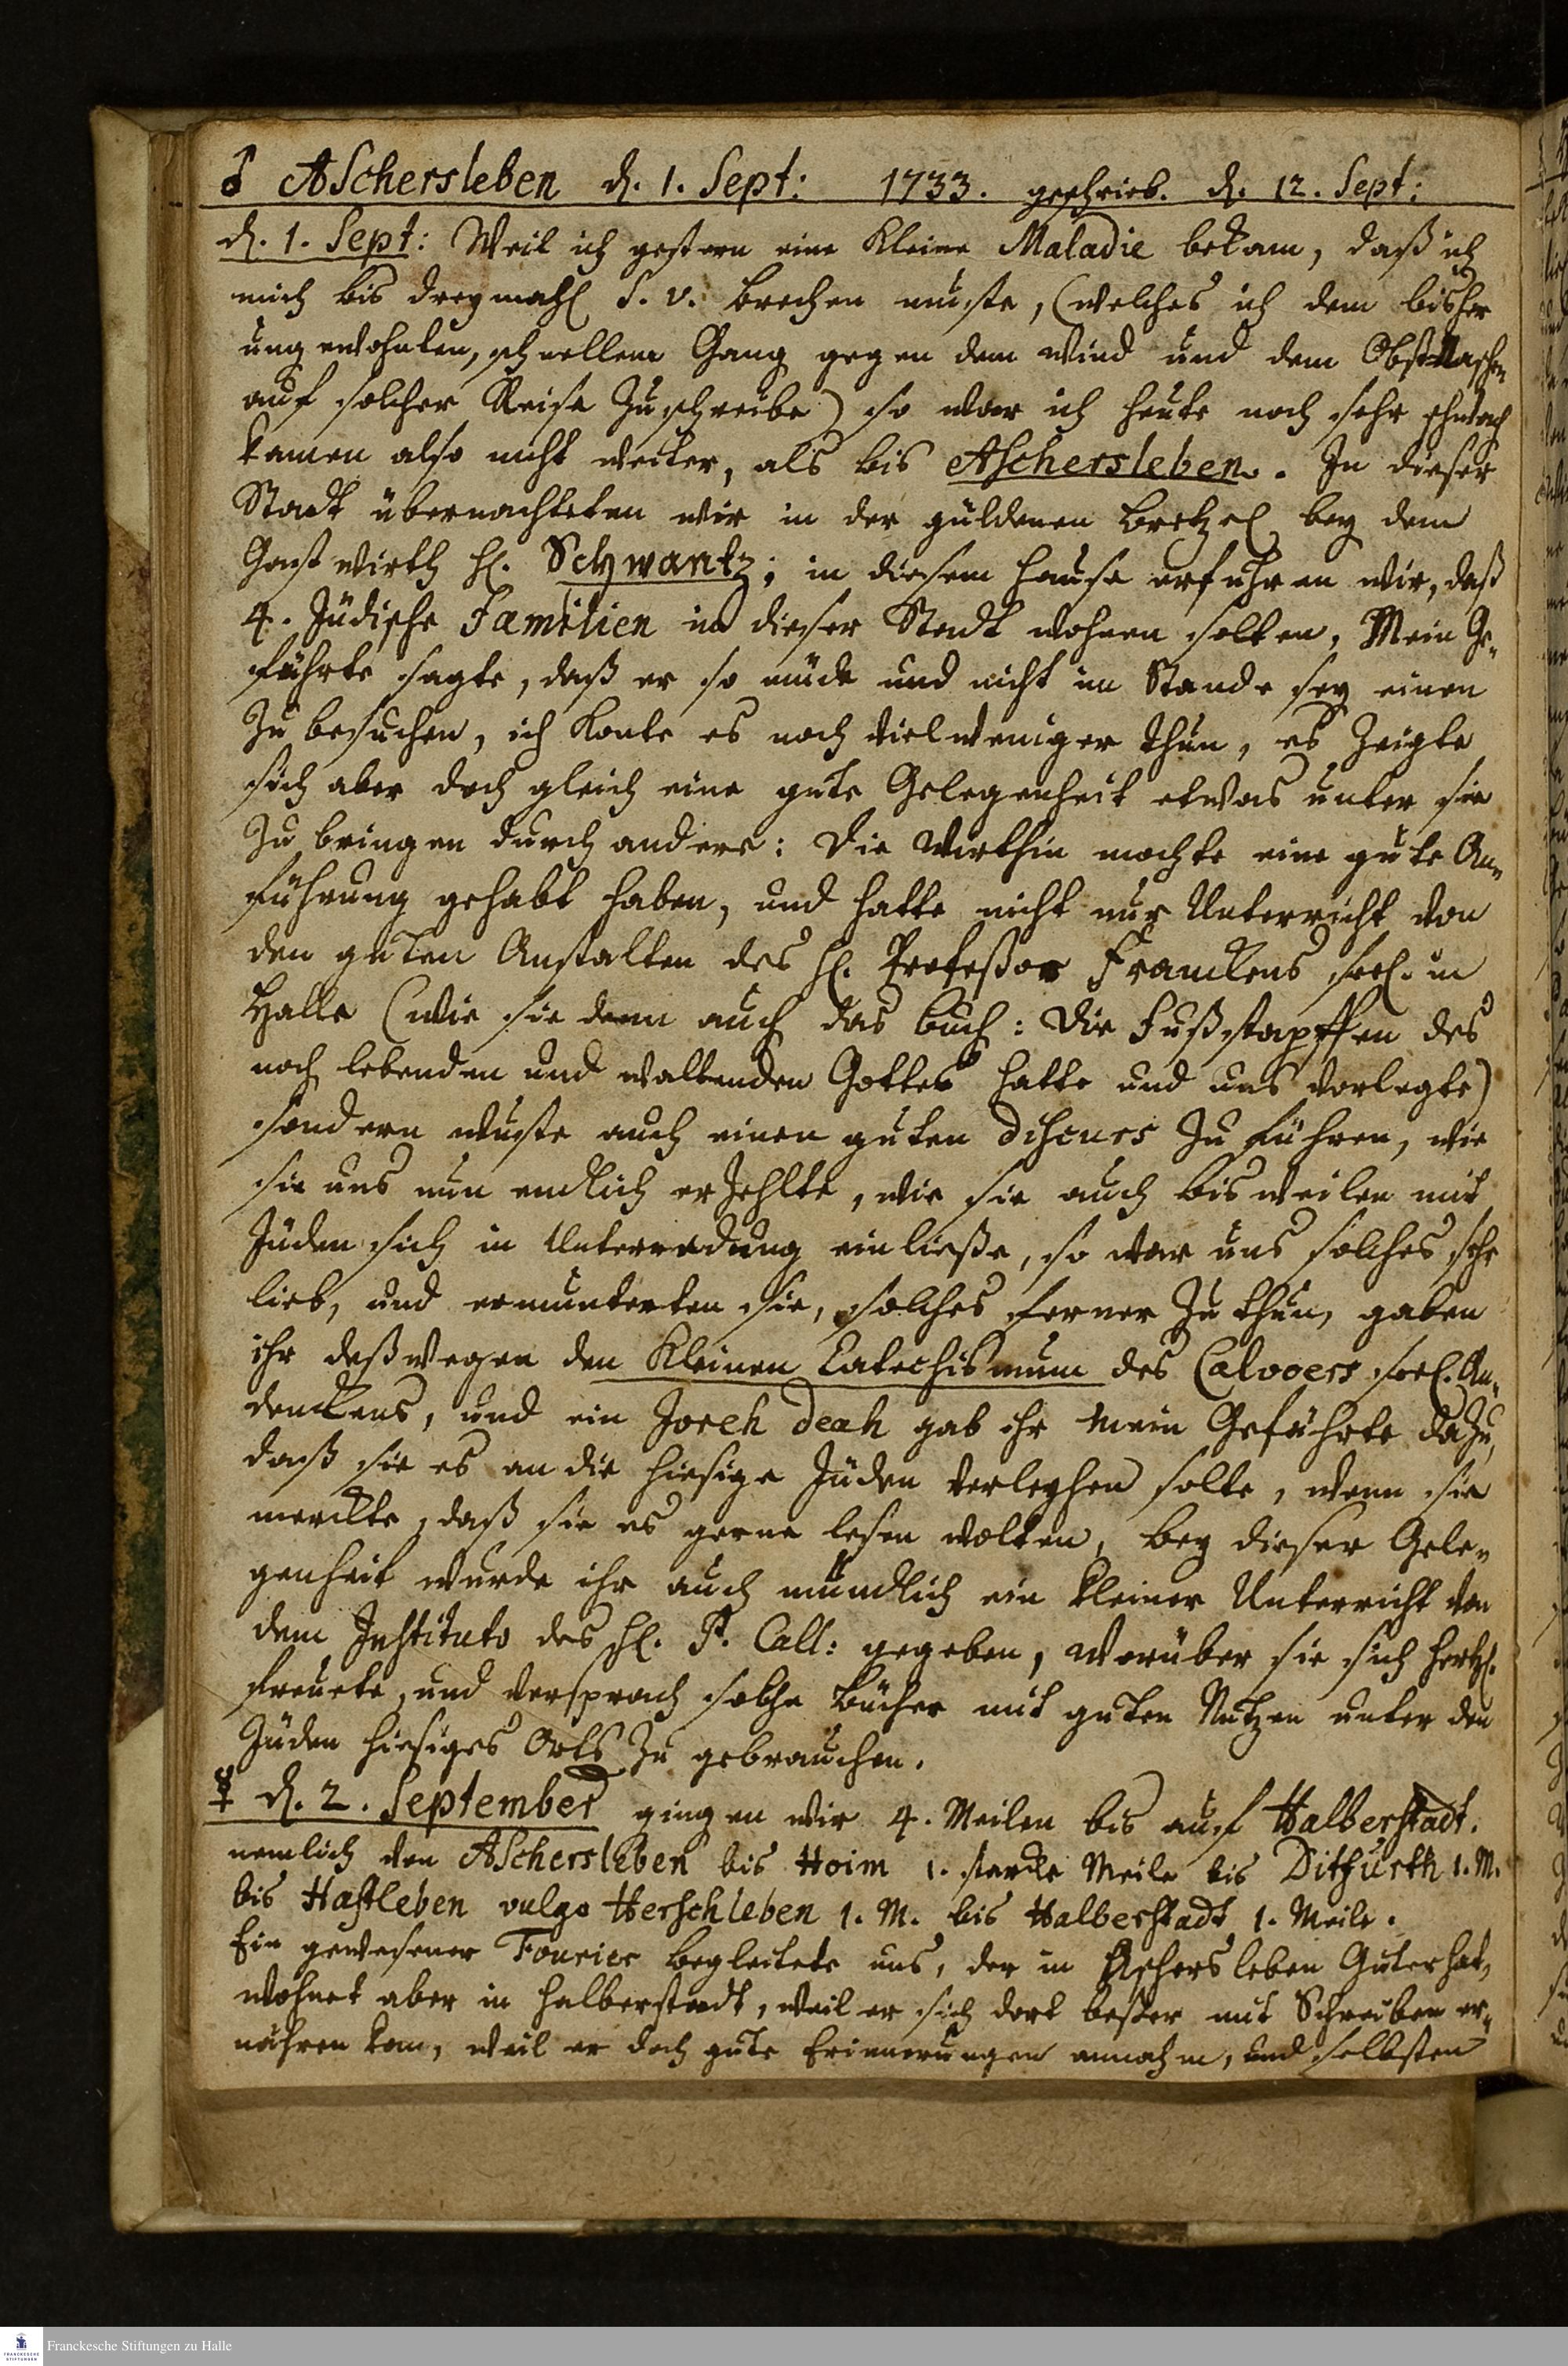 ♂ Aschersleben d. 1. Sept: 1733. geschrieb. d. 12. Sept:
d. 1. Sept: Weil ich gestern eine kleine Maladie bekam, daß ich
mich bis dreymahl S. v. brechen muste, (welches ich dem bisher
ungewohnten, schnellem Gang gegen dem Wind und dem Obst Naschen
auf solcher Reise zuschreibe) so war ich heute noch sehr schwach
kamen also nicht weiter, als bis Aschersleben. In dieser
Stadt übernachteten wir in der güldenen Bretzel bey dem
Gastwirth H. Schwantz; in diesem Hause erfuhren wir, daß
4. Jüdische Familien in dieser Stadt wohnen solten, Mein Ge„
fährte sagte, daß er so müde und nicht im Stande sey einen
zu besuchen, ich konte es noch vielweniger thun, es zeigte
sich aber doch gleich eine gute Gelegenheit etwas unter sie
zu bringen durch andere: Die Wirthin mochte eine gute An„
führung gehabt haben, und hatte nicht nur Unterricht von
den guten Anstalten des H. Profeßor Franckens seel. in
Halle (wie sie denn auch das Buch: Die Fußstapffen des
noch lebenden und waltenden Gottes hatte und uns vorlegte)
sondern wuste auch einen guten discurs zu führen, wie
sie uns nun endlich erzehlte, wie sie auch bisweilen mit
Jüden sich in Unterredung einließe, so war uns solches sehr
lieb, und ermunterten sie, solches ferner zu thun, gaben
ihr deßwegen den kleinen Catechismum des Calvoers seel. An„
denckens, und ein Joreh deah gab ihr mein Gefährte dazu,
daß sie es an die hiesige Jüden verleyhen solte, wenn sie
merckte, daß sie es gerne lesen wolten, bey dieser Gele„
genheit wurde ihr auch mündlich ein kleiner Unterricht von
dem Instituto des H. P. Call: gegeben, worüber sie sich hertzl.
freuete, und versprach solche Bücher mit guten Nutzen unter den
Jüden hiesiges Orts zu gebrauchen.
☿ d. 2. September gingen wir 4. Meilen bis auf Halberstadt.
nemlich von Aschersleben bis Hoim 1. starcke Meile bis Ditfurth 1. M.
bis Hastleben vulgo Herschleben 1. M. bis Halberstadt 1. Meile.
Ein gewesener Fourier begleitete uns, der in Aschersleben Güter hat,
wohnet aber in Halberstadt, weil er sich dort beßer mit Schreiben er„
nähren kan, weil er doch gute Erinnerungen annahm, und selbsten
Franckesche Stiftungen zu Halle